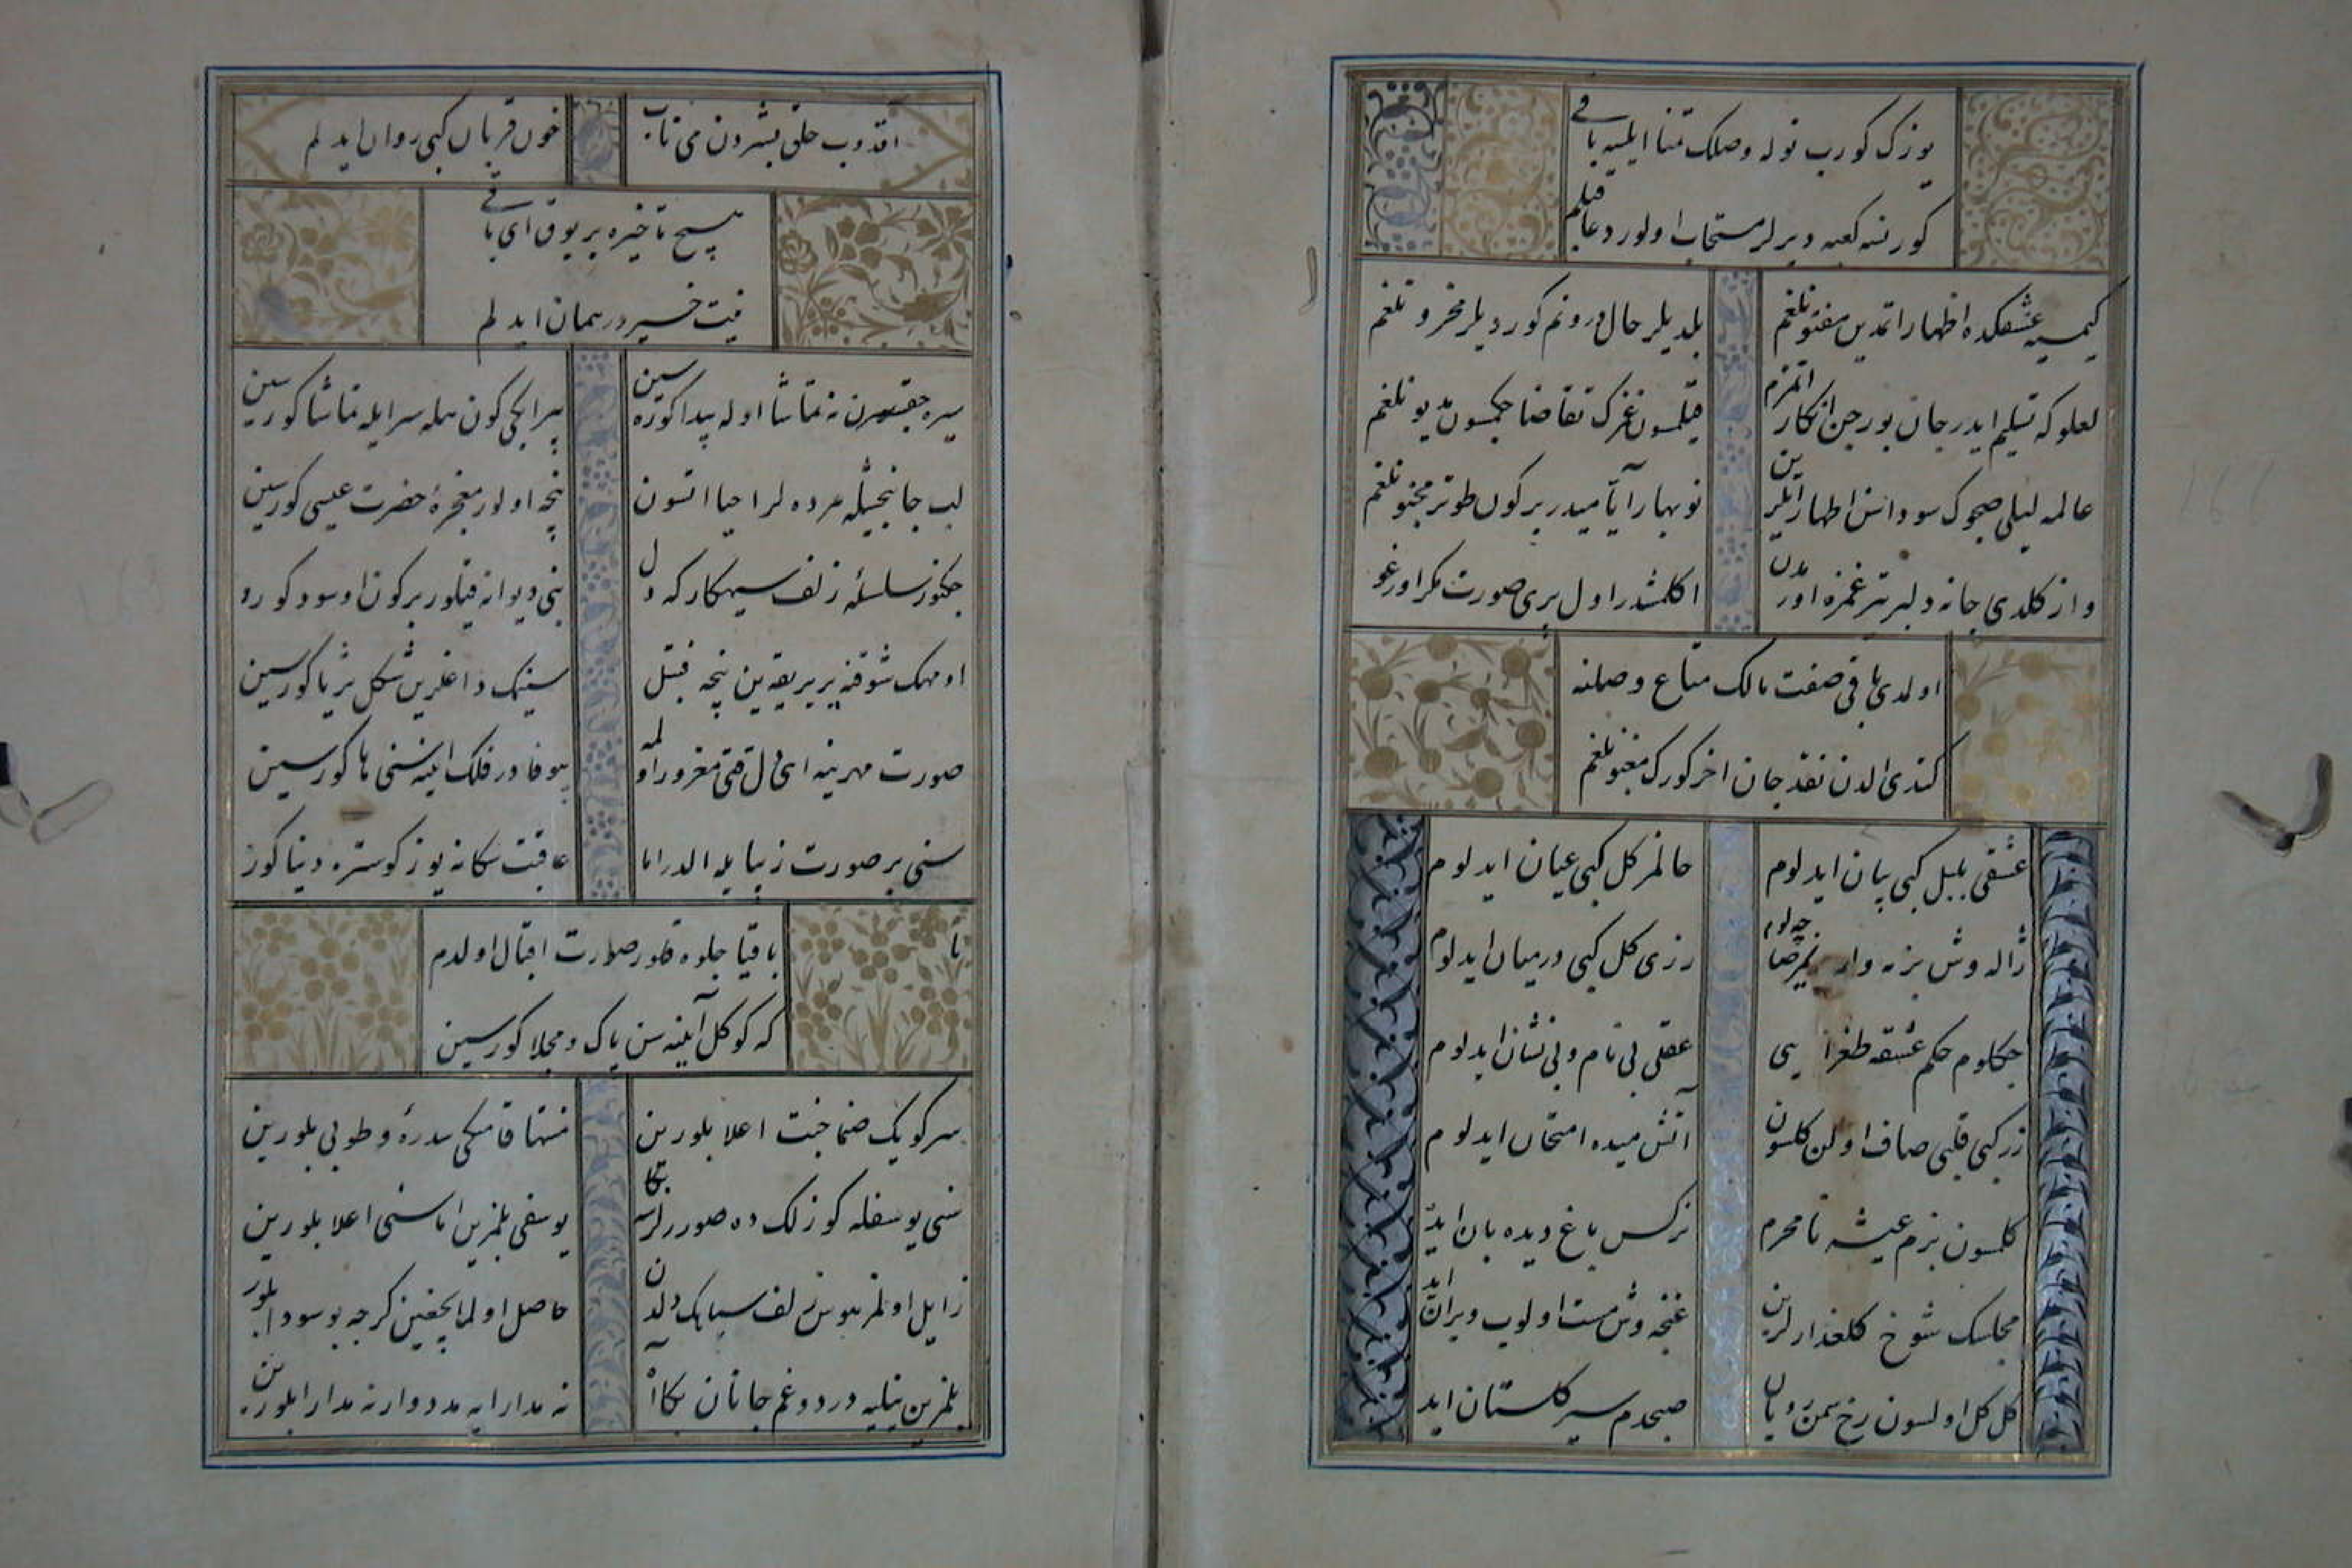 یوزک کورب نوله وصلک تمنا ایلسه باقی
کورنسه کعبه دیرلر مستجاب اولور دعا قیلم
کیمسیه عشقکده اظهار اتمدین مفتونلغم
بلدیلر حال درونم کوردیلر محزونلغم
لعلوکه تسلیم ایدر جان بورجن انکار اتمزم
قیلمسون غمزک تقاضا چکمسون مدیونلغم
عالمه لیلی صچوک سوداسن اظهار ایلرین
نوبهار آیا میدر بر کون طوتر مجنونلغم
واز کلدی جانه دلبر تیر غمزه اورمدن
اکلمشدر اول پری صورت مکر اورغو
اولدی باقی صفت مالک متاع وصلنه
کتدی الدن نقد جان اخر کورک مغبونلغم
عشقی بلبل کبی بیان ایدلوم
حالمز کل کبی عیان ایدلوم
ژاله وش بزنه وار
رزی کل کبی درمیان ایدلوم
چکلوم حکم عشقه طغرایی
عقلی بی نام و بی نشان ایدلوم
زر کبی قلبی صاف اولن کلسون
آتش میده امتحان ایدلوم
کلمسون بزم عیشه نامحرم
نرکس باغ دیده بان اید
مجلسک شوخ کلعذارلرین
غنچه وش مست اولوب ویران اید
کل کل اولسون رخ سمن رویان
صبحدم سیر کلستان اید
اقدوب حلق شیشه دن می ناب
خون قربان کبی روان ایدلم
هیچ تاخیره یر یوق ای باقی
نیت خیر در همان ایدلم
سیره چقسن نه تماشا اوله پیدا کوره سین
بیرامی کون همله سر ایله تماشا کورسین
لب جانبخشیله مرده لر احیا اتسون
نجه اولور معجزهٔ حضرت عیسی کورسین
چکنور سلسلهٔ زلف سیهکارکه دل
بنی دیوانه قیلور بر کون او سود کورو
او مهک شوقنه بر بر یقه ین نجه فتیل
سینمک داغلرین شکل ثریا کورسین
صورت مهرینه ای دل قتی مغرور اولمه
بیوفادر فلک اینه سنی ها کورسین
سنی بر صورت زیبا یله الدر اما
عاقبت سکا نه یوز کوستره دنیا کور
باقیا جلوه قلور صورت اقبال اولدم
که کوکل آینه سن پاک و مجلا کورسین
سر کویک صنما جنت اعلا بلورین
منتها قامتکی سدرهٔ و طوبی بلورین
سنی یوسفله کوزلک ده صورر لرسه بکا
یوسفی بلمزین اما سنی اعلا بلورین
زایل اولمز هوس زلف سیاهک دلدن
حاصل اولمایجغین کرچه بو سودا بلور
بلمزین نیلیه درد و غم جانان بکا آ
نه مدارایه مدد وار نه مدارا بلورین